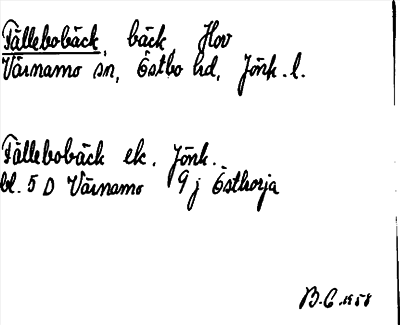 Fällebobäck, bäck Hov
Värnamo sn, Östbo hd, Jönk. l.
Fällebobäck ek. Jönk.
bl. 5 D Värnamo 9 j Östhorja
B.C. 1958